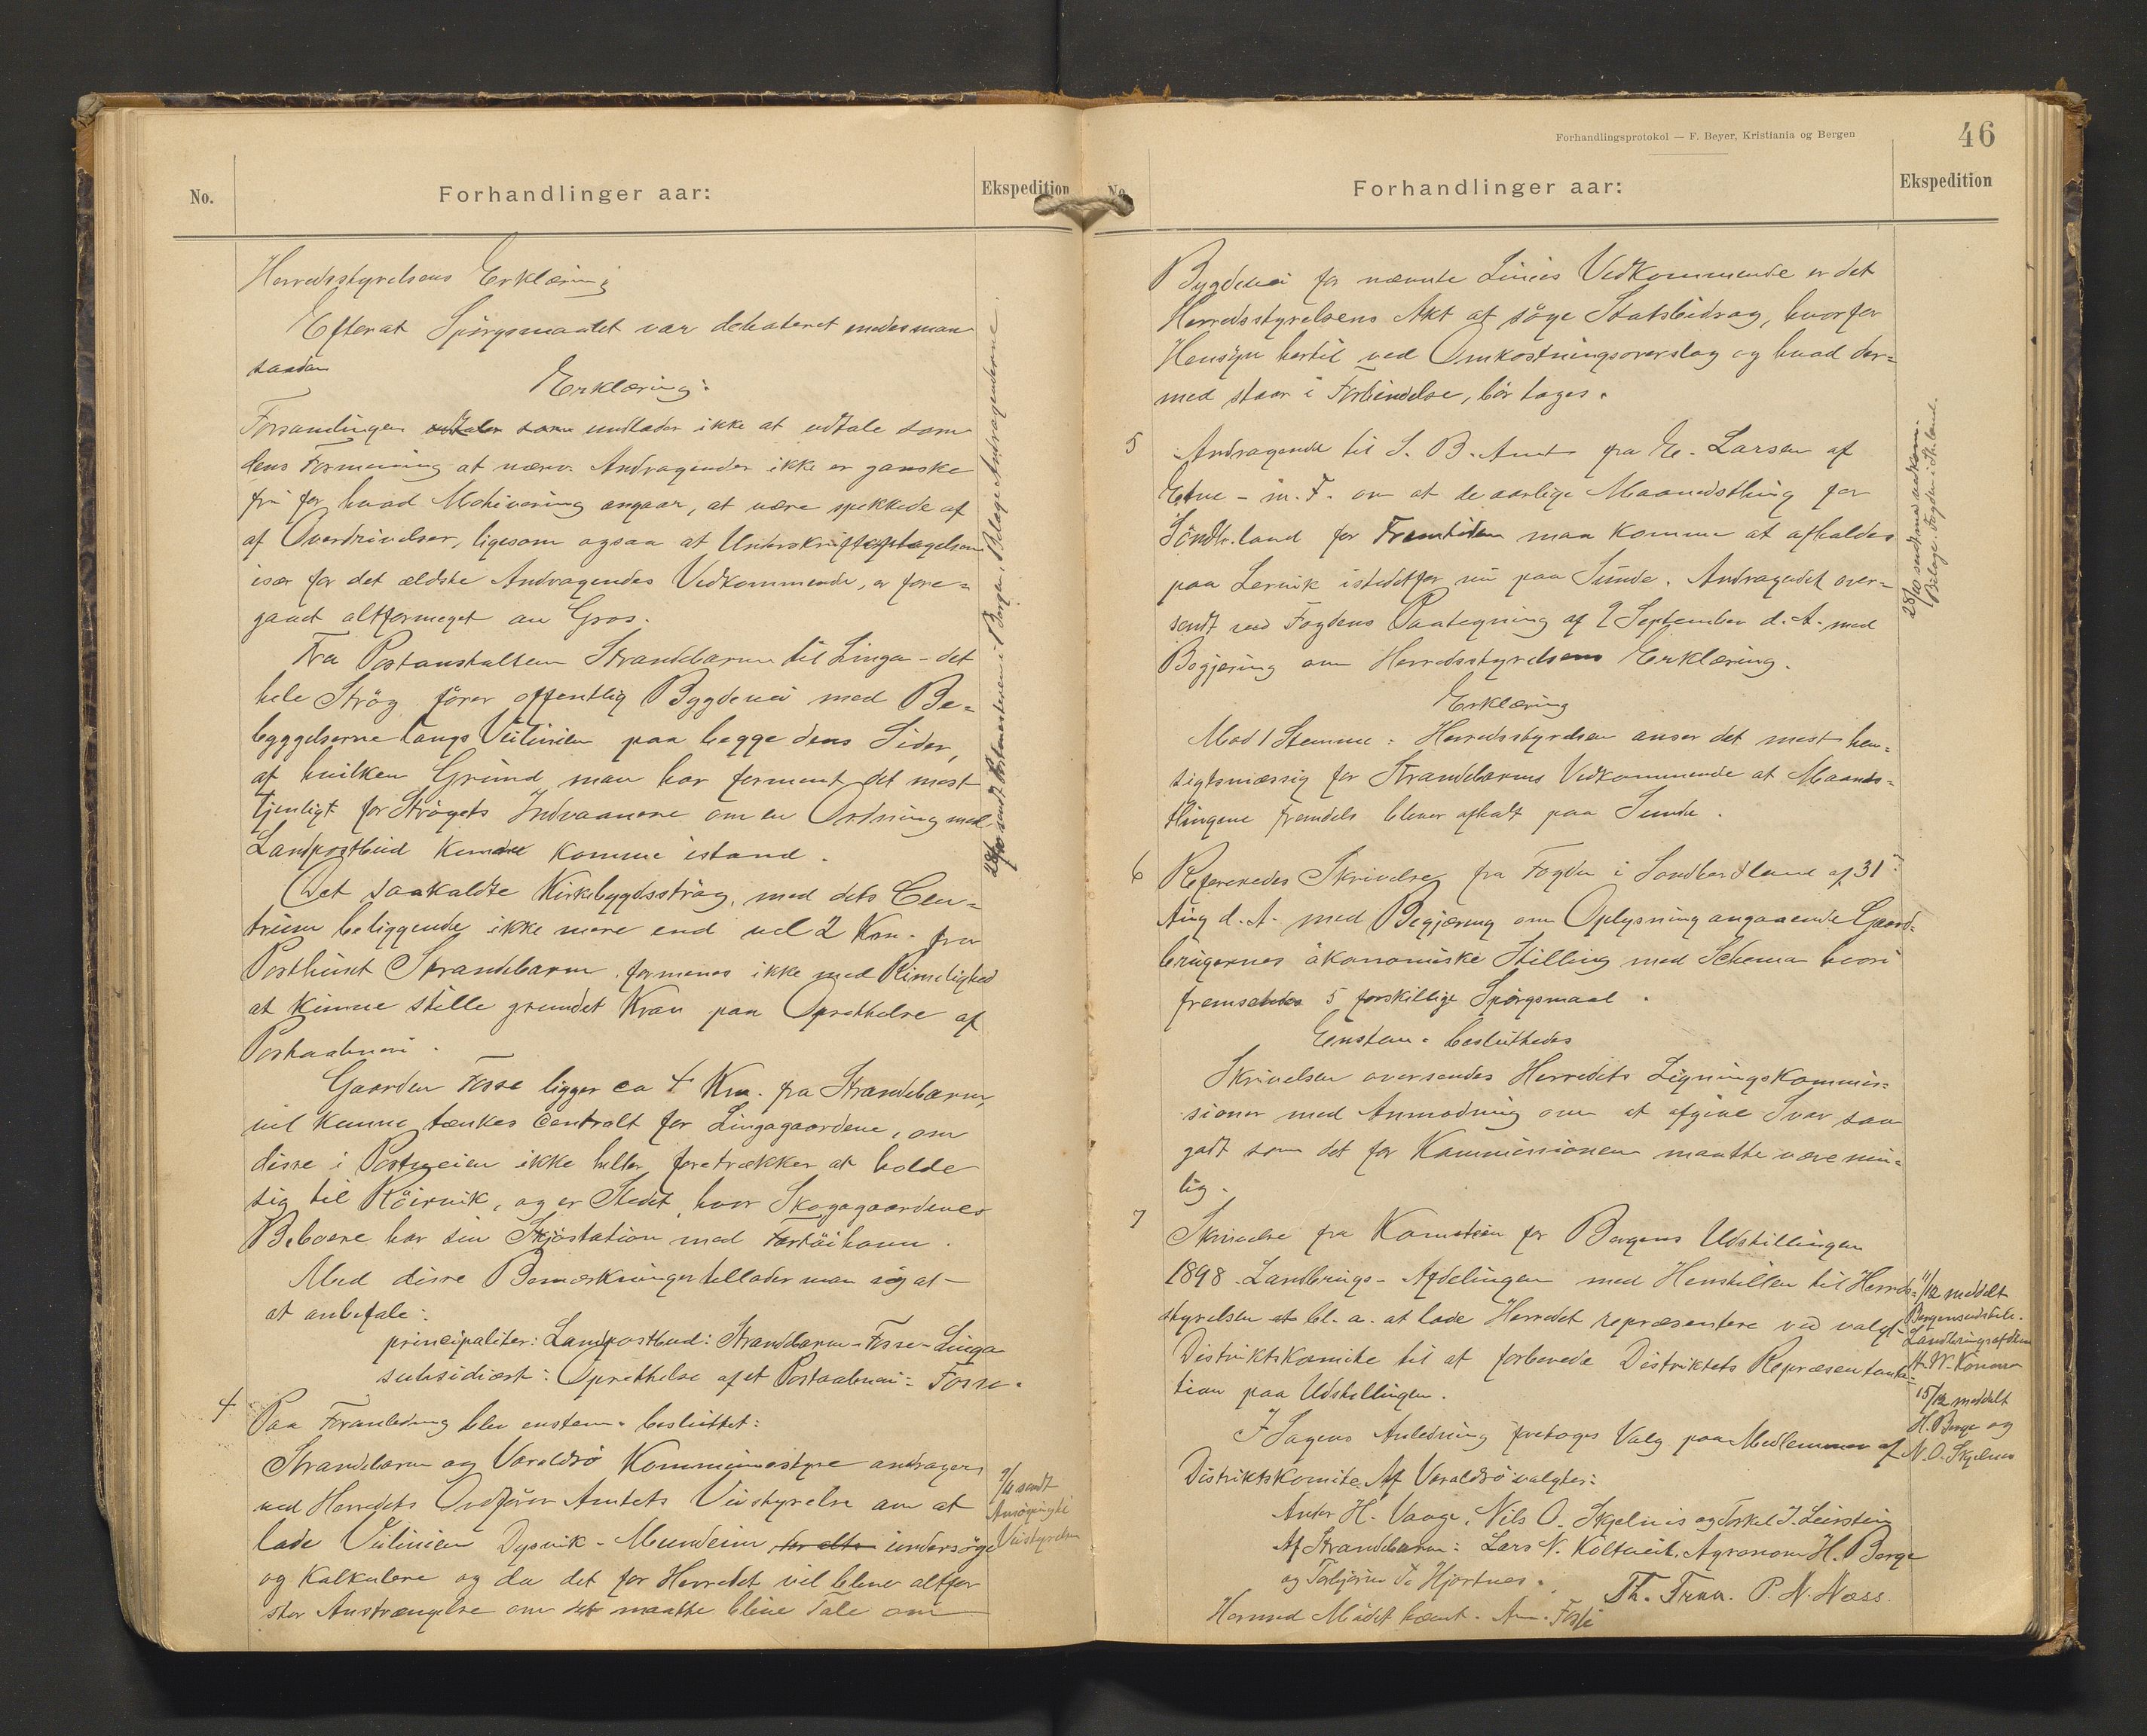 No.
Forhandlinger aar:
Ekspedition
Herredsstyrelsens Erklæring
Efterat Spörgsmaalet var debateret
saadan
Erklæring:
Forsamlingen undlader ikke at udtale som
dens Formening at nærv. Andragender ikke er ganske
fri for hvad Motivering angaar, at være spekkede af
af Overdrivelser, ligesom ogsaa at
især for det ældste Andragendes Vedkommende, er fore=
gaaet altformeget en Gros.
Fra Postanstalten Strandebarm til Linga - det
hele Strög förer offentlig Bygdevei med Be=
byggelserne langs Veilinien paa begge dens Sider,
af hvilken Grund man har forment det mest
tjenligt for Strögets Indvaanere om en Ordning med
Landpostbud kunde komme istand.
Det saakaldte Kirkebygdsströg, med dets Cen=
trum beliggende ikke mere end vel 2 Km. fra
Posthuset Strandebarm formenes ikke med Rimelighed
at kunne stille grundet Krav paa Oprettelse af
Postaabneri.
Gaarden Fosse ligger ca 4 Km. fra Strandebarm,
vil kunne tænkes centralt for Lingagaardene, om
disse i Postveien ikke heller foretrækker at holde
sig til Röirvik, og er Stedet, hvor Skogagaardenes
Beboere har sin Sjöstation med
Med disse Bemærkninger tillader man sig at
at anbefale:
principaliter: Landpostbud: Strandebarm - Fosse - Linga
subsidiært: Oprettelse af et Postaabneri: Fosse.
28/10 sendt Postmesteren i Bergen, Bilage Andragenderne.
4
Paa Foranledning blev enstem. besluttet:
Strandebarm og Varaldsö Kommunestyre andrager
ved Herredets Ordförer Amtets Veistyrelse om at
lade Veilinien Dysvik - Mundeim undersöge
og kalkulere og da det for Herredet vil blive altfor
stor Anstrængelse om det maatte blive Tale om
sendt
Ansögning til
Veistyrelsen
Forhandlingsprotokol — F. Beyer, Kristiania og Bergen
46
No.
Forhandlinger aar:
Ekspedition
Bygdevei for nævnte Linies Vedkommende er det
Herredsstyrelsens Agt at söge Statsbidrag, hvorfor
Hensyn hertil ved Omkostningsoverslag og hvad der=
med staar i Forbindelse, bör tages.
5
Andragende til S. B. Amt fra E. Larsen af
Etne - m. F. om at de aarlige Maanedsthing for
Söndh.land for Fremtiden maa komme at afholdes
paa Lervik istedetfor nu paa Sunde. Andragendet over=
sendt ved Fogdens Paategning af 9 September d. A. med
Begjæring om Herredsstyrelsens Erklæring.
Erklæring
Mod 1 Stemme: Herredsstyrelsen anser det mest hen=
sigtsmæssig for Strandebarms Vedkommende at Maaneds=
thingene fremdeles bliver afholdt paa Sunde.
28/10 sendt
Bilage. Fogden i
6
Refereredes Skrivelse fra Fogden i Sondhordland af 31
Aug d. A. med Begjæring om Oplysning angaaende Gaard=
brugernes ökonomiske Stilling med Schema hvori
fremsættes 5 forskjellige Spörgsmaal.
Enstem. besluttedes
Skrivelsen oversendes Herredets Ligningskommis=
sioner med Anmodning om at afgive Svar saa
godt som det for Kommissionen maatte være mu=
lig.
7
Skrivelse fra Komiteen for Bergens Udstillingen
1898 Landbrugs-Afdelingen med Henstillen til Herreds=
styrelsen bl. a. at lade Herredet repræsentere ved valgt
Distriktskomite til at forberede Distriktets Repræsenta=
tion paa Udstillingen.
I Sagens Anledning foretoges Valg paa Medlemmer af
Distriktskomite. Af Varaldsö valgtes:
Ander H. Vaage, Nils O. Skjelnes og Torkel J. Leirstein
Af Strandebarm: Lars N. Koltveit, Agronom H. Berge
og Torbjörn Hjartnes.
Hermed Mödet hævet. Am. Fosse
Th. Traa. P. N. Næss.
11/12 meddelt
Bergensudstill.
Landbrugsafdelin
15/12 meddelt
H. Berge og
N. O. Skjelnes